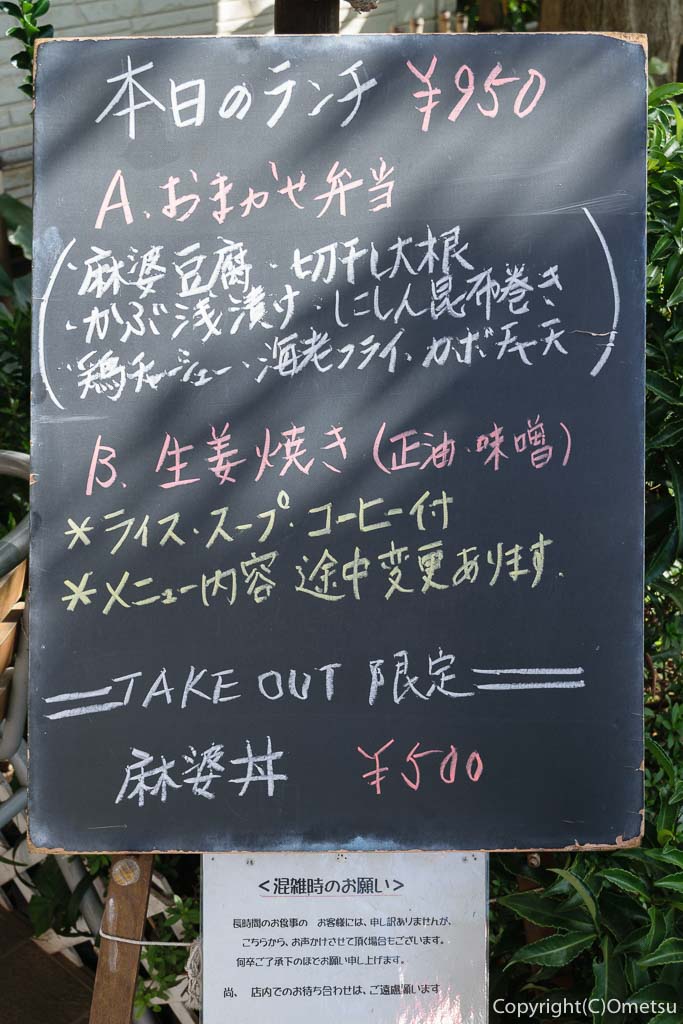 本日のランチ ¥950
A.おまかせ弁当
・麻婆豆腐・切干し大根
・かぶ浅漬け・にしん昆布巻き
・鶏チャーシュー・海老フライ・カボチャ天
B.生姜焼き(正油・味噌)
*ライス・スープ・コーヒー付
*メニュー内容 途中変更あります.
TAKE OUT 限定
麻婆丼 ¥500
<混雑時のお願い>
長時間のお食事の お客様には、申し訳ありませんが、
こちらから、お声かけさせて頂く場合もございます。
何卒ご了承下のほどお願い申し上げます。
尚、 店内でのお待ち合わせは、ご遠慮願います
Copyright(C)Ometsu